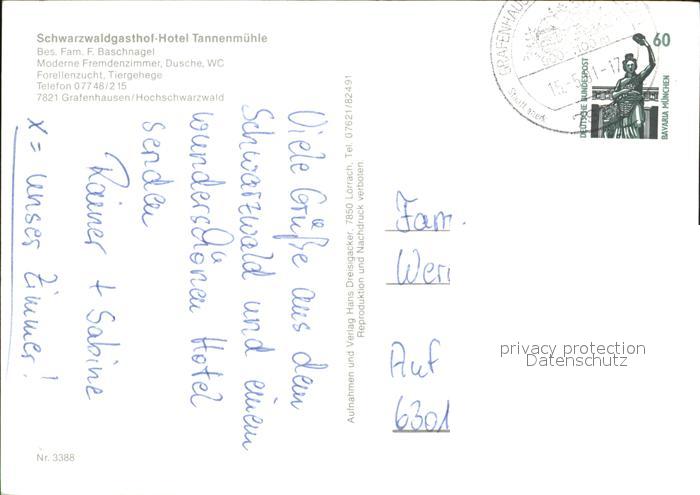 Schwarzwaldgasthof-Hotel Tannenmühle
Bes. Fam. F. Baschnagel
Moderne Fremdenzimmer, Dusche, WC
Forellenzucht, Tiergehege
Telefon 07748/215
7821 Grafenhausen/Hochschwarzwald
Viele Grüße aus dem
Schwarzwald und einem
wunderschönen Hotel
senden
Rainer + Sabine
x = unser Zimmer!
Nr. 3388
Aufnahmen und Verlag Hans Dreisigacker, 7850 Lörrach, Tel. 07621/82491
Reproduktion und Nachdruck verboten.
GRAFENHAUSE
60
DEUTSCHE BUNDESPOST
BAVARIA MÜNCHEN
Fam.
Weri
Auf
6301
privacy protection
Datenschutz